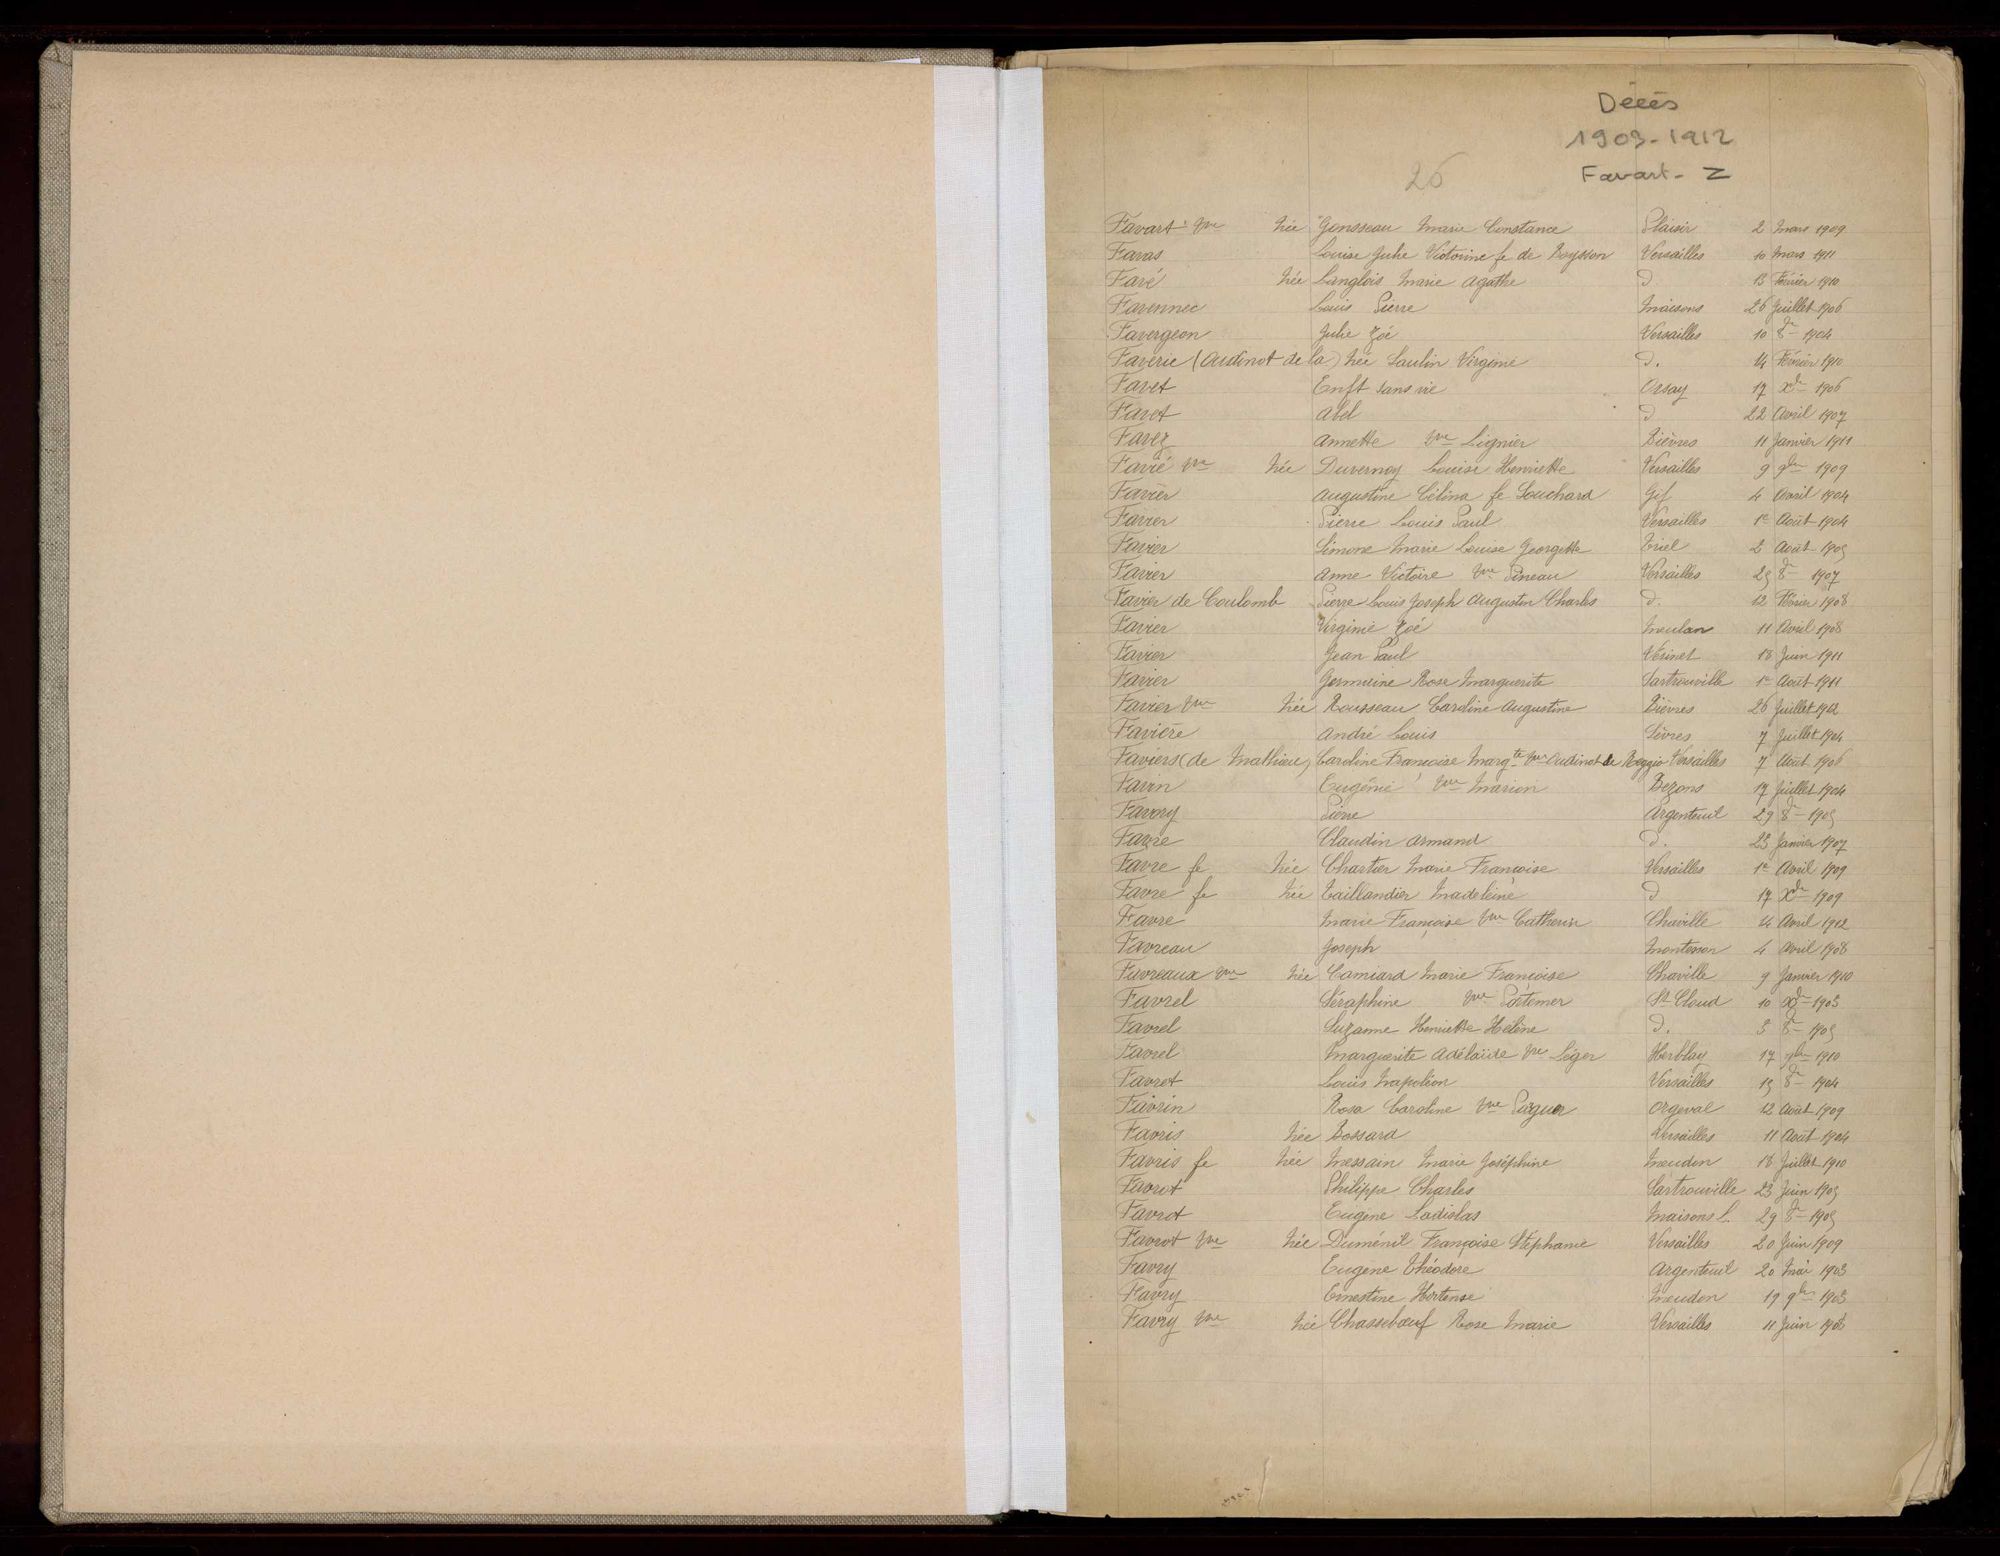 Décès
1903-1912
Favart - Z
26
Favart Vve née Gonsseau Marie Constance Plaisir 2 Mars 1909
Favas Louise Julie Victorine fe de Boysson Versailles 10 Mars 1911
Favé née Langlois Marie Agathe d° 13 Février 1910
Favennec Louis Pierre Maisons 26 Juillet 1906
Favergeon Julie Zoé Versailles 10 8bre 1904
Faverie (Audinot de la) née Saulin Virginie d° 14 Février 1910
Favet Enft sans vie Orsay 17 Xbre 1906
Favet Abel d° 22 Avril 1907
Favez Annette Vve Lignier Bièvres 11 Janvier 1911
Favié Vve née Duvernoy Louise Henriette Versailles 9 9bre 1909
Favier Augustine Célina fe Souchard Gif 4 Avril 1904
Favier Pierre Louis Paul Versailles 1er Août 1904
Favier Simone Marie Louise Georgette Triel 2 Août 1905
Favier Anne Victoire Vve Pineau Versailles 25 8bre 1907
Favier de Coulomb Pierre Louis Joseph Augustin Charles d° 12 Février 1908
Favier Virginie Zoé Meulan 11 Avril 1908
Favier Jean Paul Vésinet 18 Juin 1911
Favier Germaine Rose Marguerite Sartrouville 1er Août 1911
Favier Vve née Rousseau Caroline Augustine Bièvres 26 Juillet 1912
Favière André Louis Sèvres 7 Juillet 1904
Faviers (de Mathieu) Caroline Françoise Margte Vve Oudinot de Reggio Versailles 7 Août 1906
Favin Eugénie Vve Marion Bezons 17 Juillet 1904
Favory Pierre Argenteuil 29 8bre 1905
Favre Claudin Armand d° 23 Janvier 1907
Favre fe née Chartier Marie Françoise Versailles 1er Avril 1909
Favre fe née Taillandier Madeleine d° 17 Xbre 1909
Favre Marie Françoise Vve Catherin Chaville 14 Avril 1912
Favreau Joseph Montesson 4 Avril 1908
Favreaux Vve née Camiard Marie Françoise Chaville 9 Janvier 1910
Favrel Séraphine Vve Postemer St Cloud 10 Xbre 1903
Favrel Suzanne Henriette Hélène d° 3 8bre 1905
Favrel Marguerite Adélaïde Vve Léger Herblay 17 9bre 1910
Favret Louis Napoléon Versailles 15 8bre 1904
Favrin Rosa Caroline Vve Orgeval 12 Août 1909
Favris née Bossard Versailles 11 Août 1904
Favris fe née Messain Marie Joséphine Meudon 18 Juillet 1910
Favrot Philippe Charles Sartrouville 23 Juin 1905
Favrot Eugène Ladislas Maisons L. 29 8bre 1905
Favrot Vve née Duménil Françoise Stéphanie Versailles 20 Juin 1909
Favry Eugène Théodore Argenteuil 20 Mai 1903
Favry Ernestine Hortense Meudon 19 9bre 1903
Favry Vve née Chasseboeuf Rose Marie Versailles 11 Juin 1906